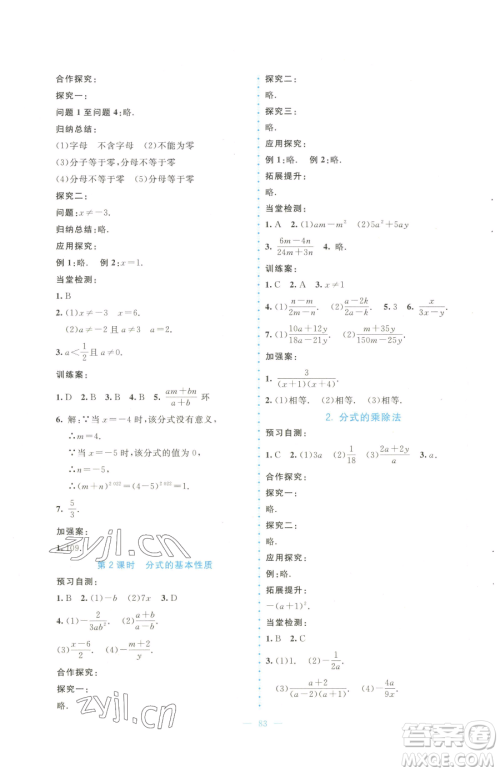 合作探究：
探究一：
问题 1 至问题 4：略.
归纳总结：
(1)字母　不含字母　(2)不能为零
(3)分子等于零，分母不等于零
(4)分母等于零
探究二：
问题：x≠-3.
归纳总结：略.
应用探究：
例 1：略.　例 2：略.
当堂检测：
1. B
2. (1)x≠0　x=-3.
3. a<1/2且 a≠0.
训练案：
1. D　2. B　3. A　4. B　5. (am+bn)/(a+b) 环
6. 解：∵当 x=4 时，该分式没有意义，
∴m=4.
∵当 x=-5 时，该分式的值为 0，
∴n=5.
7. 5/3.
加强案：
1. 109.
第 2 课时　分式的基本性质
预习自测：
1. B　2. (1)-b　(2)7x　3. D
合作探究：
探究一：
略.
探究二：
略.
探究三：
略.
应用探究：
例 1：略.　例 2：略.
拓展提升：
略.
当堂检测：
1. A　2. (1)am-m²　(2)5a²+5ay
3. (6m-4n)/(24m+3n)　4. 略.
训练案：
1. C　2. A　3. x≠1
4. (1)(n-m)/(2m-n)　(2)(a-2k)/(2a-k)　5. 3　6. x/(3x-y).
7. (1)(10x+12y)/(18x-21y).　(2)(m+35y)/(150m-25m).
加强案：
1. 3/((x+1)(x+4)).
2. (1)相等.　(2)相等.
2. 分式的乘除法
预习自测：
1. C　2. (1)3a　(2)1/18　(3)(2a+2y)/a　3. a.
合作探究：
探究一：
略.
探究二：
略.
应用探究：
例：略.
拓展提升：
-(a+1)².
当堂检测：
1. B　2. C
63
zyjl.cn
zyjl.cn
答案圈
MXQE.COM